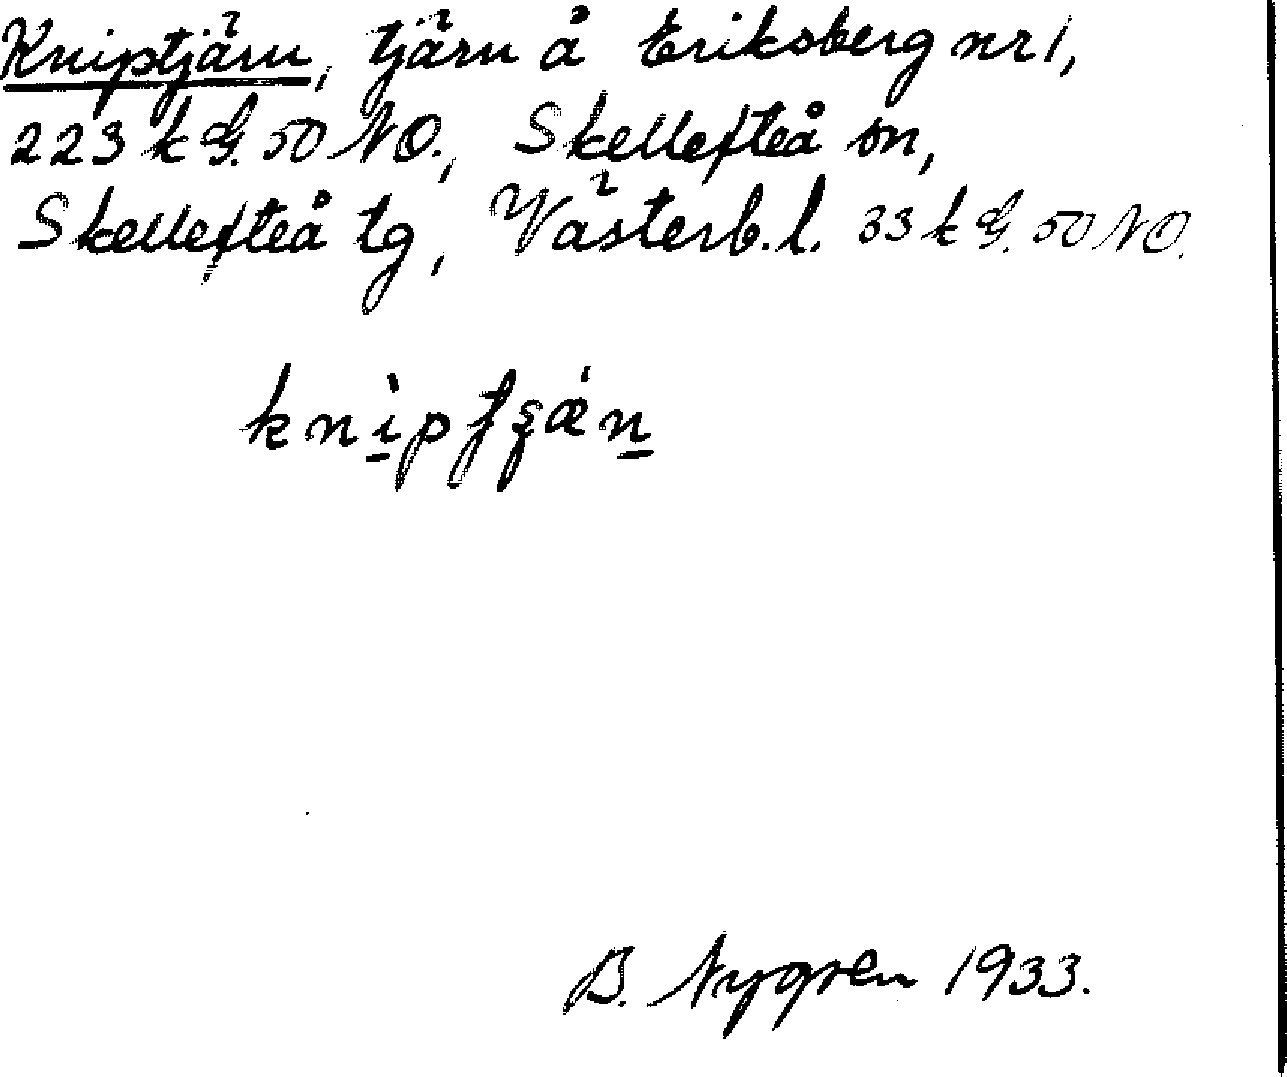 Kniptjärn, tjärn å Eriksberg nr 1,
223 k G. 50 NO., Skellefteå sn,
Skellefteå tg, Västerb. l. 33 k G. 50 NO.
B. Nygren 1933.